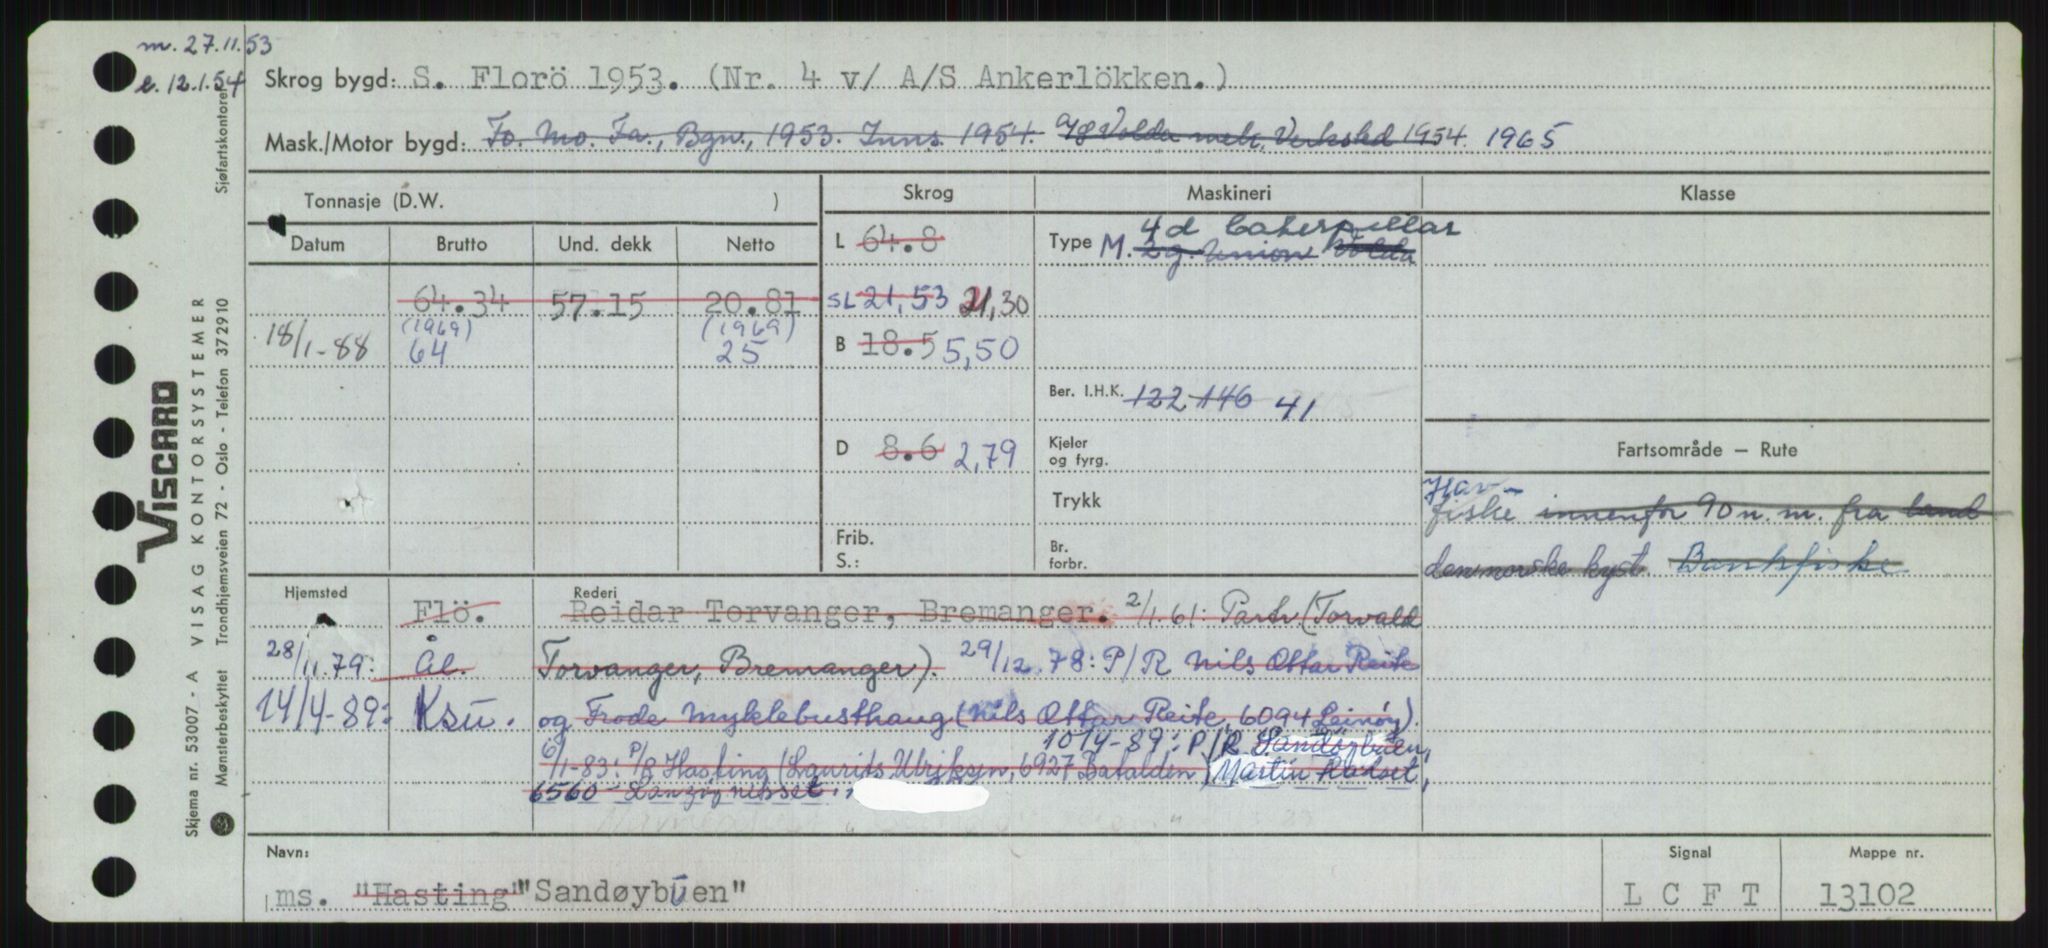 m. 27.11.53
e. 12.1.54
Skrog bygd: S. Florö 1953. (Nr. 4 v/ A/S Ankerlökken.)
Mask./Motor bygd: Fo. Mo. Fa., Bgn., 1953. Inns. 1954. A/S Volda mek. Verksted 1954. 1965
Tonnasje (D.W. )
Skrog
Maskineri
Klasse
Datum Brutto Und. dekk Netto
L 64.8
Type M. 2 g. Union Volda
4 d Caterpillar
64.34 57.15 20.81
SL 21,53 21,30
(1969) (1969)
18/1-88 64 25
B 18.5 5,50
Ber. I.H.K. 122 146 41
D 8.6 2,79
Kjeler
og fyrg.
Fartsområde – Rute
Trykk
Hav-
fiske innenfor 90 n. m. fra land
den norske kyst. Bankfiske
Frib.
S.:
Br.
forbr.
Hjemsted
Rederi
Flö. Reidar Torvanger, Bremanger. 2/1.61: Partr. (Torvald
28/11.79: Ål. Torvanger, Bremanger). 29/12.78: P/R Nils Ottar Reite
14/4-89: Ksu. og Frode Myklebusthaug (Nils Ottar Reite, 6094 Leinøy).
10/4-89: P/R Sandøybuen,
6/1-83: P/R Hasting (Laurits Ulriksen, 6927 Batalden) (Martin
6560
Navn:
ms. "Hasting" "Sandøybuen"
Signal
L C F T
Mappe nr.
13102
Sjøfartskontoret
VISCARD
VISAG KONTORSYSTEMER
Skjema nr. 53007 - A
Mønsterbeskyttet Trondhjemsveien 72 - Oslo - Telefon 372910